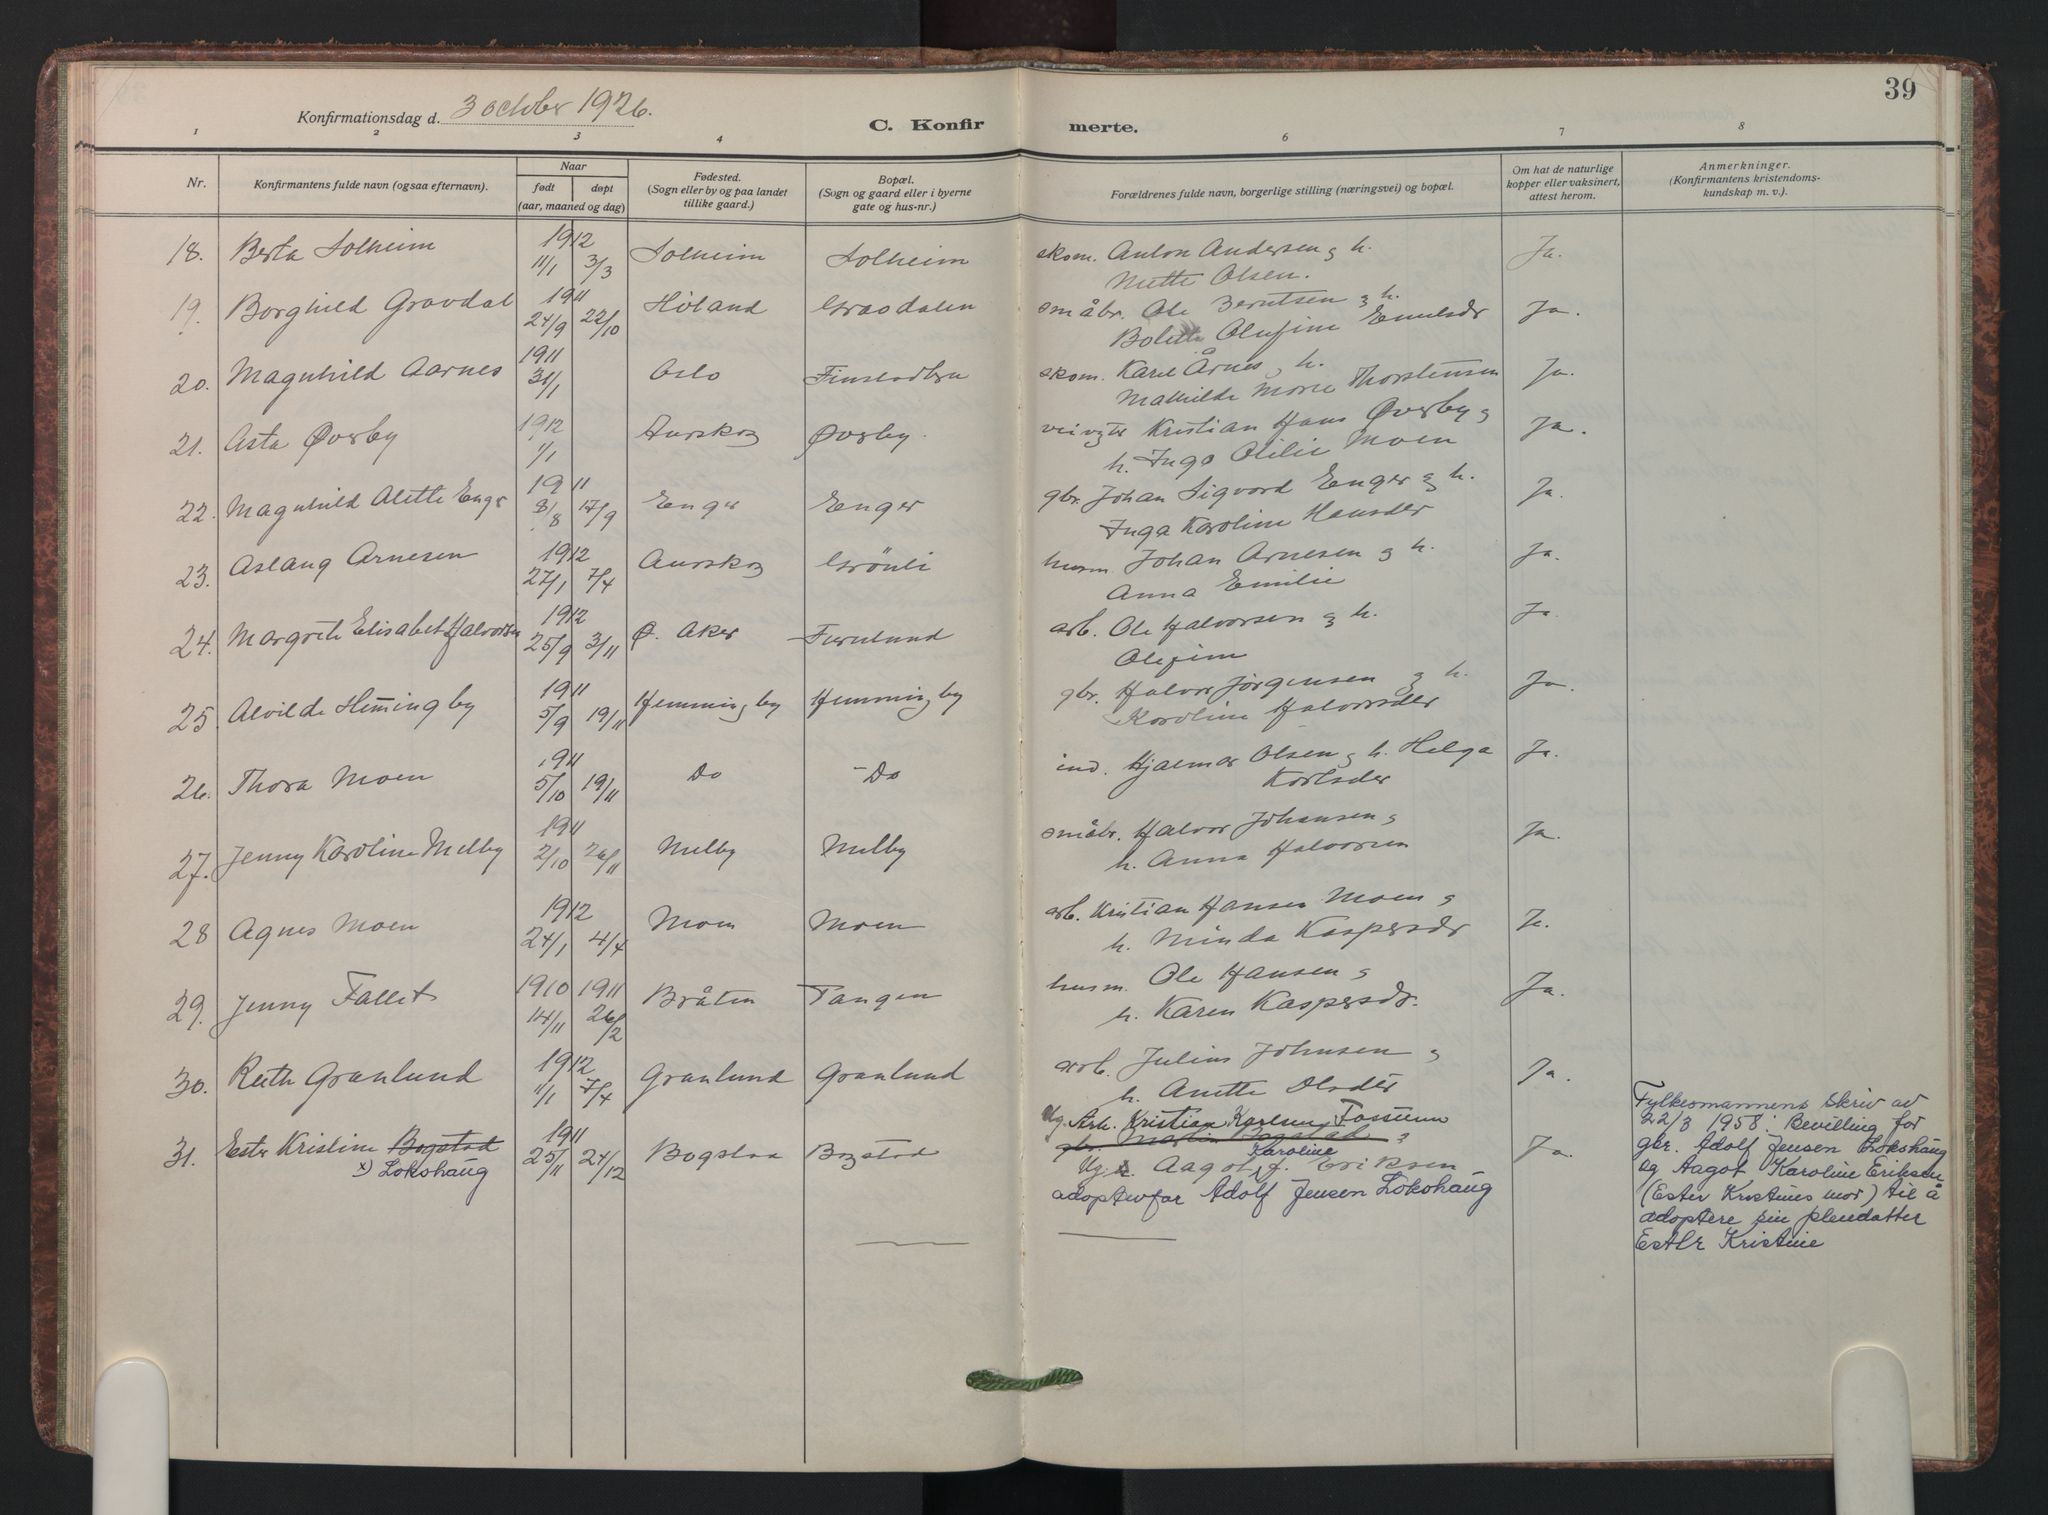 39
Konfirmationsdag d. 3 october 1926.
C. Konfir merte.
1 2 3 4 6 7 8
Nr.
Konfirmantens fulde navn (ogsaa efternavn).
Naar
født døpt
(aar, maaned og dag)
Fødested.
(Sogn eller by og paa landet
tillike gaard.)
Bopæl.
(Sogn og gaard eller i byerne
gate og hus-nr.)
Forældrenes fulde navn, borgerlige stilling (næringsvei) og bopæl.
Om hat de naturlige
kopper eller vaksinert,
attest herom.
Anmerkninger.
(Konfirmantens kristendoms-
kundskap m. v.).
18. Berta Solheim 1912 11/1 3/3 Solheim Solheim skom. Anton Andersen og h. Ja.
Mette Olsen.
19. Borghild Gravdal 1911 24/9 22/10 Høland Gravdalen småbr. Ole Berntsen og h. Ja.
Bolette Olefine Emilsdr
20. Magnhild Aarnes 1911 31/1 Oslo Finstadbru skom. Karel Årnes og h. Ja.
Mathilde Marie Thorstensen
21. Asta Øverby 1912 1/1 Aurskog Øverby. veivgtr Kristian Hans Øverby og Ja.
h. Inga Otilie Moen
22. Magnhild Alette Enger 1911 8/8 17/9 Enger Enger gbr. Johan Sigvard Enger og h. Ja.
Inga Karoline Hansder
23. Aslaug Arnesen 1912 27/1 7/4 Aurskog Grönli husm. Johan Arnesen og h. Ja.
Anna Emilie
24. Margrete Elisabet Halvorsen 1912 25/9 3/11 Ø. Aker Furulund arb. Ole Halvorsen og h. Ja.
Olefine
25. Alvilde Hemingby 1911 5/9 19/11 Hemmingby Hemmingby gbr. Halvor Jørgensen og h. Ja.
Karoline Halvorsder
26. Thora Moen 1911 5/10 19/11 Do Do ind. Hjalmar Olsen og h. Helga Ja.
Karlsder
27. Jenny Karoline Melby 1911 2/10 26/11 Melby Melby småbr. Halvor Johansen og Ja.
h. Anna Halvorsen
28 Agnes Moen 1912 24/1 4/4 Moen Moen arb. Kristian Hansen Moen og Ja.
h. Minda Kaspersdr
29. Jenny Fallet 1910 14/11 1911 26/2 Bråten Tangen husm. Ole Hansen og Ja.
h. Karen Kaspersdr.
30. Ruth Granlund 1912 11/1 7/4 Granlund Granlund arb. Julius Johnsen og Ja.
h. Anette Olsder
31. Ester Kristine Bogstad 1911 25/11 24/12 Bogstad Bogstad Ug. Arb. Kristian Karlsen Fossum Ja.
x) Lokshaug
gbr. Martin Bogstad og
Ug. h. Aagot Karoline f. Eriksen
adoptivfar Adolf Jensen Lokshaug
Fylkesmannens skriv av
22/3 1958: Bevilling for
gbr. Adolf Jensen Lokshaug
og Aagot Karoline Eriksen
(Ester Kristines mor) til å
adoptere sin pleiedatter
Ester Kristine